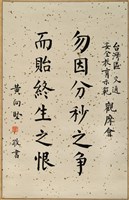 台灣區交通
安全教育示範 觀摩會
勿因分秒之争
而貽終生之恨
黄向堅 敬書